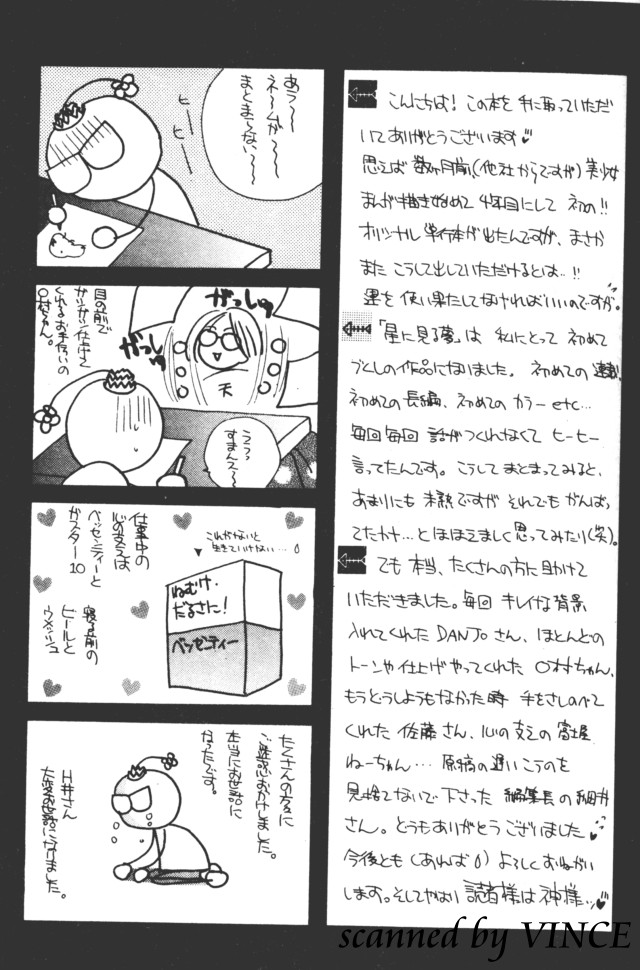 こんにちは！この本を手に取っていただ
いてありがとうございます♥
思えば数カ月前、(他社からですが)美少女
まんが描き始めて4年目にして初の!!
オリジナル単行本が出たんですが、まさか
またこうして出していただけるとは‥!!
運を使い果たしてなければいいのですが。
「星に見る夢」は私にとって初めて
づくしの作品になりました。初めての連載、
初めての長編、初めてのカラーetc…
毎回毎回話がつくれなくてヒーヒー
言ってたんです。こうしてまとまってみると、
あまりにも未熟ですがそれでもがんばっ
てたかナ…とほほえましく思ってみたり(笑)。
でも本当、たくさんの方に助けて
いただきました。毎回キレイな背景
入れてくれたDANJoさん、ほとんどの
トーンや仕上げやってくれた○村ちゃん、
もうどうしようもなかった時手をさしのべて
くれた佐藤さん、心の支えの富士屋
ねーちゃん…原稿の遅いこうのを
見捨てないで下さった編集長の細井
さん。どうもありがとうございました♥
今後とも(あれば)よろしくおねがい
します。そしてやはり読者様は神様ッ♥
あう〜〜
ネームが〜〜
まとまらない〜〜〜
ヒー
ヒー
目の前で
ガシガシ仕上げて
くれるお手伝いの
○村ちゃん。
がっしゅ
がっしゅ
天
ううっっ
すまんえ〜
仕事中の
心の支えは
ベッセンティーと
ガスター10
寝る前の
ビールと
ウメッシュ
これがないと
生きていけない…
ねむけ・
だるさに！
ベッセンティー
たくさんの方々に
ご迷惑おかけしました。
本当にお世話に
なったです。
H井さん
大変お世話になりました。
scanned by VINCE